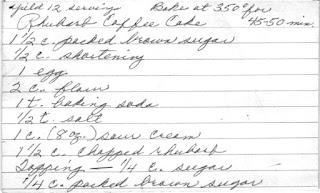 Yield 12 servings Bake at 350° for
Rhubarb Coffee Cake 45-50 min.
1 1/2 c. packed brown sugar
1/2 c. shortening
1 egg
2 c. flour
1 t. baking soda
1/2 t. salt
1 c. (8 oz.) sour cream
1 1/2 c. chopped rhubarb
Topping — 1/4 c. sugar
1/4 c. packed brown sugar